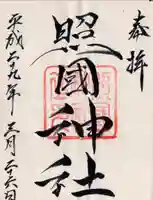 奉拝
照國神社
平成二十九年三月二十六日